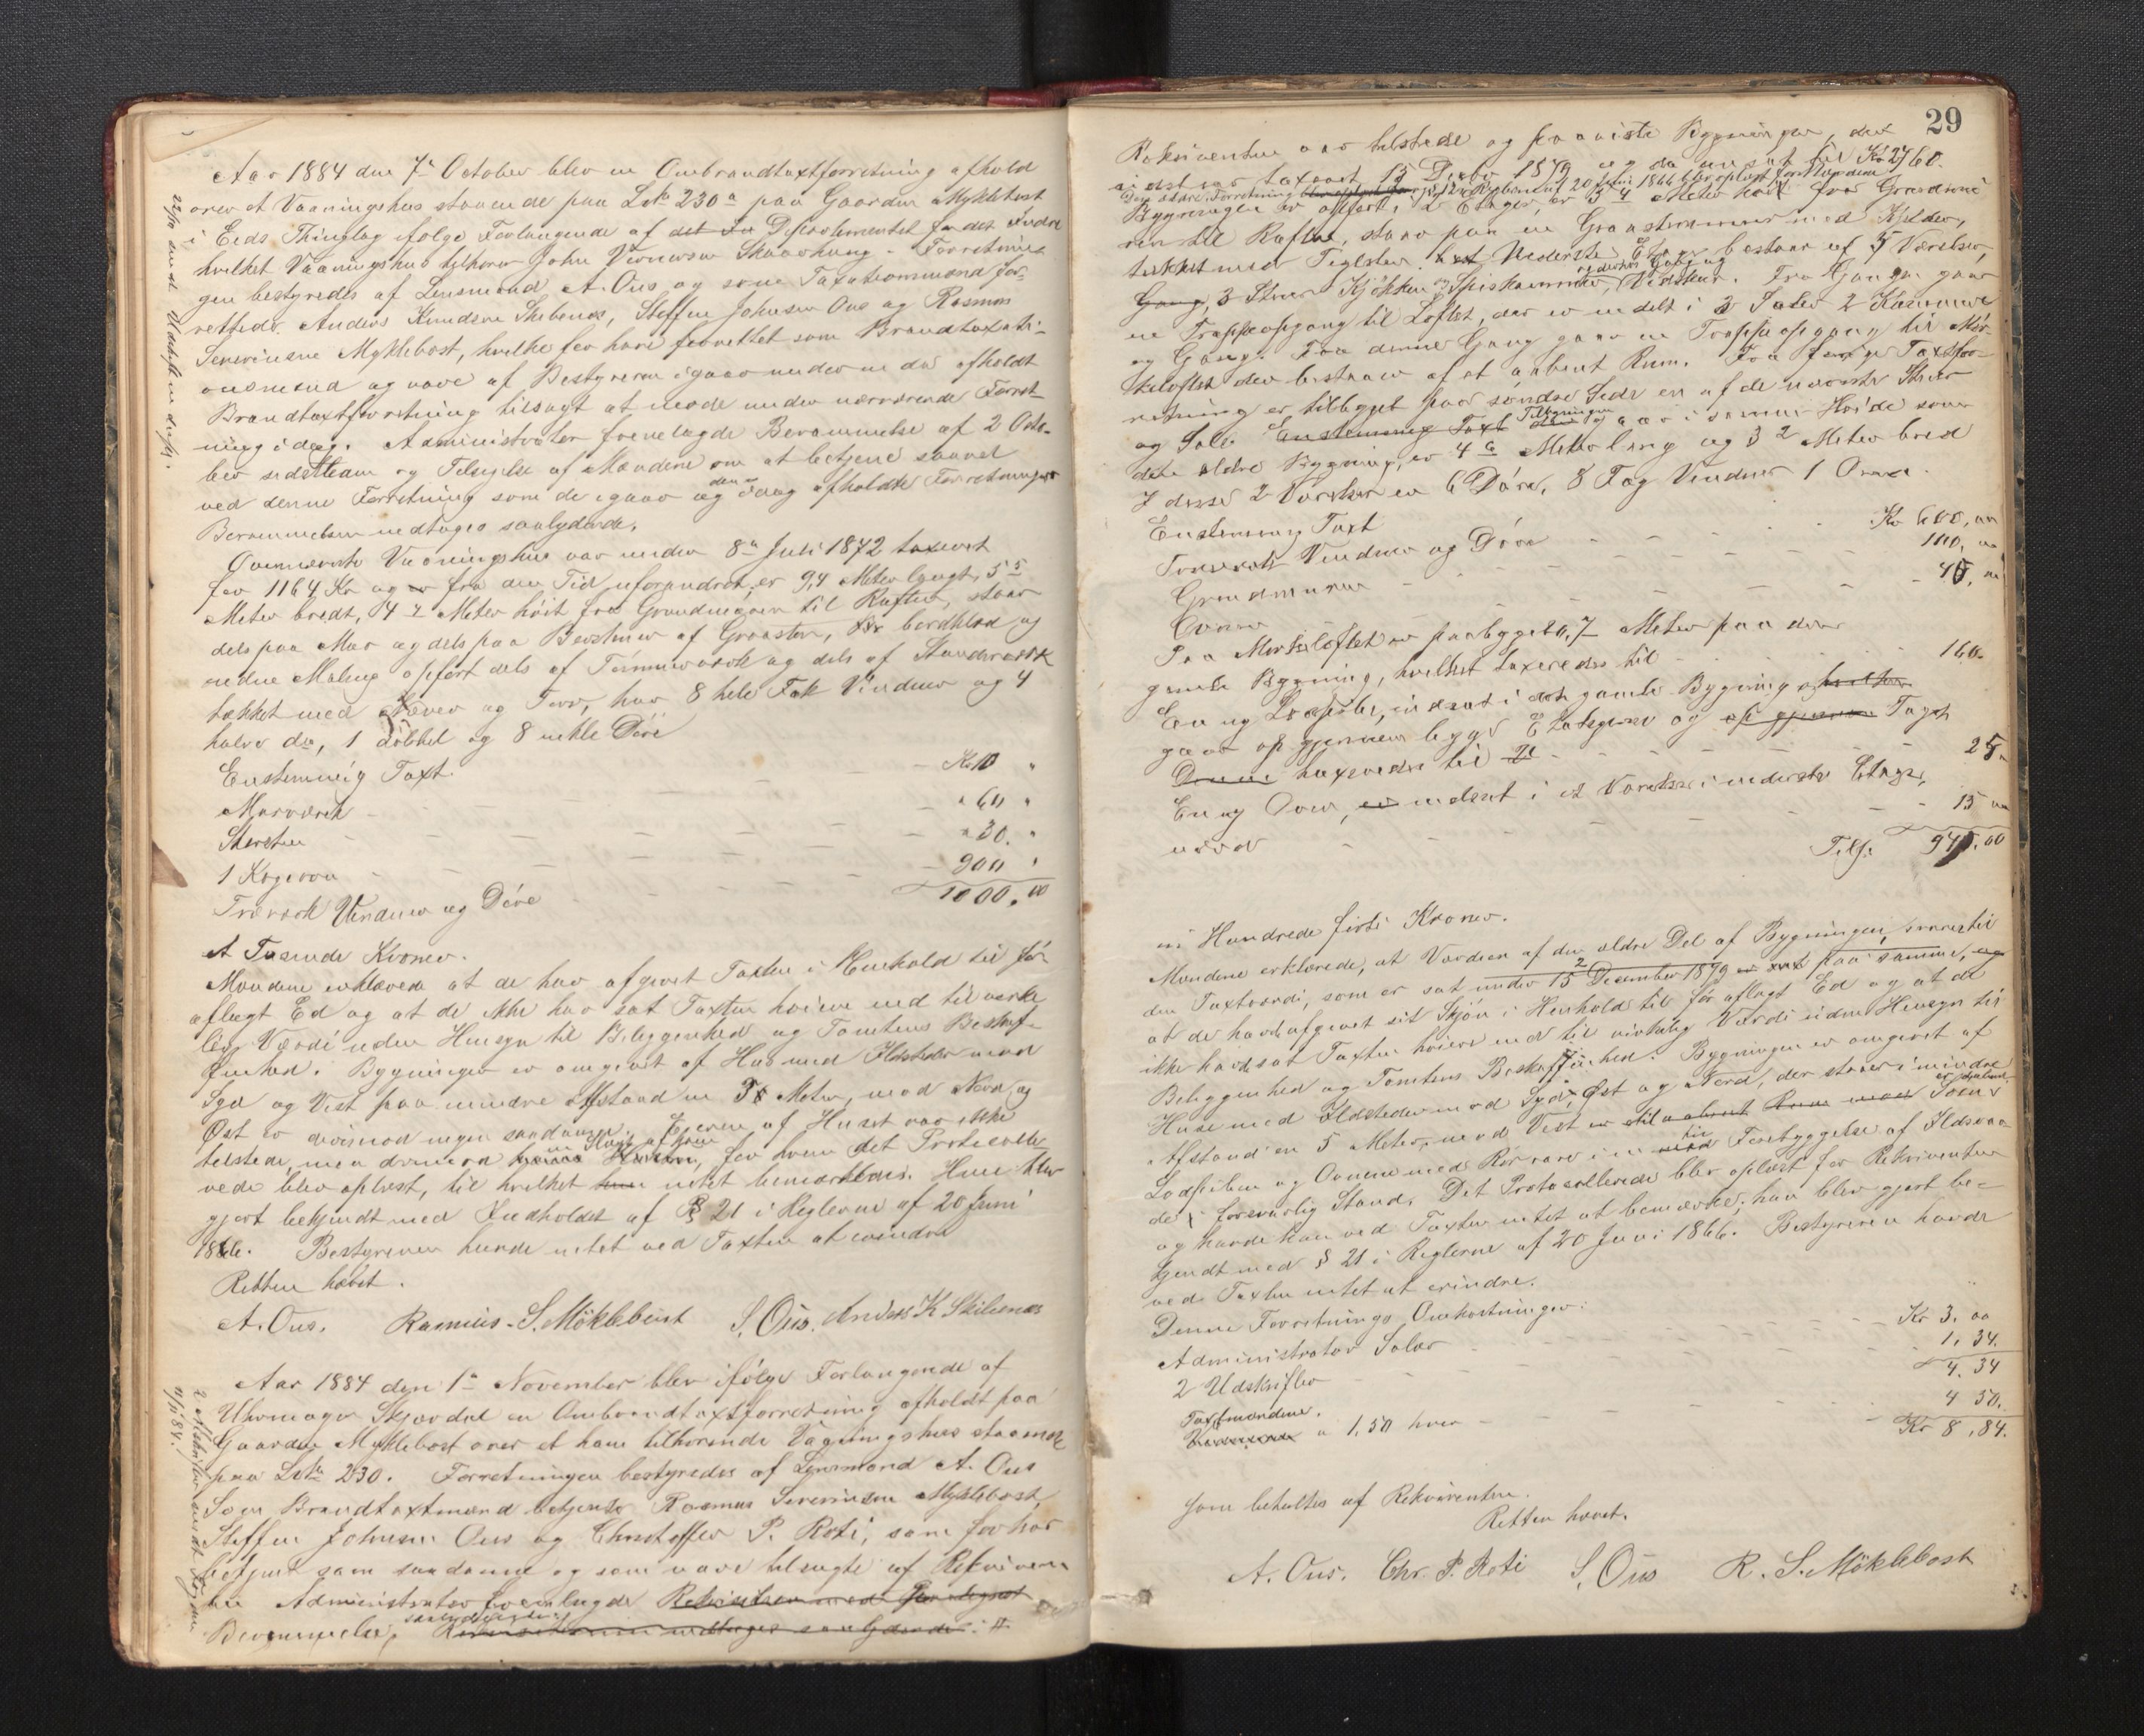 Aar 1884 den 7de October blev en Ombrandtaxtforretning afhold
over et Vaaningshus staaende paa Lbn 230a paa Gaarden Myklebost
i Eeds Thinglag ifølge Forlangende af det Departementet for det Indre
hvilket Vaaningshus tilhører John Skaarhaug. Forretnin-
gen bestyredes af Lensmand A. Ous og som Taxationsmænd for-
rettede Anders Knudsen Skibenes, Steffen Johnsen Ous og Rasmus
Severinsen Myklebost, hvilke før have forrettet som Brandtaxati-
onsmænd og vare af Bestyreren igaar under en da afholdt
Brandtaxtforretning tilsagt at møde under nærværende Forret-
ning idag. Administrator fremlagde Berammelse af 2 Octo-
ber sidstleden og Tilsigelse af Mændene om at betjene saavel
ved denne Forretning som de igaar og den idag afholdte Forretninger
Berammelsen indtages saalydende.
Ovennævnte Vaaningshus var under 8de Juli 1872 taxeret
for 1164 Kr og er fra den Tid uforandret, er 9,4 Meter langt, 5 5
Meter bredt, 4 Meter høit fra Grundmuren til Raften, staar
dels paa Mur og dels paa af Graasten, er bordklæd og
uden Maling opført dels af Tømmerværk og dels af Standværk
tækket med Næver og Torv, har 8 hele Fak Vinduer og 4
halve do, 1 dobbel og 8 enkle Døre
Enstemmig Taxt.
Murværk - Kr 10 "
Skorsten - " 60 "
1 Kogeovn - " 30. "
Træværk Vinduer og Døre - 900 "
1000,00
Et Tusende Kroner.
Mændene erklærede at de har afgivet Taxten i Henhold til før
aflagt Ed og at de ikke har sat Taxten høiere end til virke
lig Værdi uden Hensyn til Beliggenhed og Tomtens Beskaf-
fenhed. Bygningen er omgivet af Hus med Ildsteder mod
Syd og Vest paa mindre Afstand en 38 Meter, mod Nord og
Øst er derimod ingen saadanne. Eieren af Huset var ikke
tilstede, men derimod hans Kone, for hvem det Protocolle
rede blev oplæst, til hvilket hun intet bemærkede. Hun blev
gjort bekjendt med Indholdet af § 21 i Reglerne af 20 Juni
1866. Bestyreren havde intet ved Taxten at erindre
Retten hævet.
A. Ous. Rasmus S. Møklebust S. Ous. Anders K Skibenæs
22/10 sendt Udskrift en deraf.
Aar 1884 den 1ste November blev ifølge Forlangende af
Uhrmager Skjerdal en Ombrandtaxtforretning afholdt paa
Gaarden Myklebost over et ham tilhørende Vaaningshus staaende
paa Lbn 230. Forretningen bestyredes af Lensmand A. Ous
Som Brandtaxtmænd betjente Rasmus Severinsen Myklebost,
Steffen Johnsen Ous og Christoffer P. Roti, som før har
betjent som saadanne og som vare tilsagte af Rekvirenten
Administrator fremlagde Rekvisition med
Berammelse, saalydende: #
2 Udskrifter sendt
11/11 84.
29
Rekvirenten var tilstede og paaviste Bygningen, der
sidst var taxeret 15 Decbr 1879 og da ansat til Kr 2760.
Bygningen er opført i 2 Etager, er 5 4 Meter høi fra Grundmu
ren til Raften, staar paa en Graastensmur med Kjelder,
tækket med Teglsten. Nederste Etage bestaar af 5 Værelser,
Gang, 3 Stuer Kjøkken og Spiskammer, Fra Gangen gaar
en Trappeopgang til Loftet, der er inddelt i 3 Saler 2 Kammere
og Gang. Fra denne Gang gaar en Trappeopgang til Mør-
keloftet der bestaar af et aabent Rum. Fra forrige Taxtfor-
retning er tilbygget paa søndre Side en af de nævnte Stuer
og Sale. Enstemmig Taxt Tilbygningen gaar i samme Høide som
den ældre Bygning, er 4 6 Meter lang og 3 2 Meter bred
I disse 2 Værelser er 6 Døre, 8 Fag Vinduer 1 Ovn.
Enstemmig Taxt
Træværk Vinduer og Døre - Kr 600,00
Grundmuren - 100,00
Ovnen - 40,00
Paa Mørkeloftet er paabygget 0,7 Meter paa den
gamle Bygning, hvilket taxeredes til - 160.
En ny Lodpibe, indsat i den gamle Bygning
gaar op gjennem begge Etagerne og op gjennem Taget
Denne taxeredes til - 25.
En ny Ovn, er indsat i et Værelse i nederste Etage,
værd - 15 00
Tils. 940.00
ni Hundrede førti Kroner.
Mændene erklærede, at Værdien af den ældre Del af Bygningen, svarer til
den Taxtværdi, som er sat under 15 December 1879 paa samme,
at de havde afgivet sit Skjøn i Henhold til før aflagt Ed og at de
ikke havde sat Taxten høiere end til virkelig Værdi uden Hensyn til
Beliggenhed og Tomtens Beskaffenhed. Bygningen er omgivet af
Huse med Ildsteder mod Syd, Øst og Nord, der staar i mindre
Afstand en 5 Meter, mod Vest er
Lodpiben og Ovnene med Rør vare i en til Forebyggelse af Ildsvaa-
de forsvarlig Stand. Det Protocollerede blev oplæst for Rekvirenten
og havde han ved Taxten intet at bemærke; han blev gjort be-
kjendt med § 21 i Reglerne af 20 Juni 1866. Bestyreren havde
ved Taxten intet at erindre.
Denne Forretnings Omkostninger:
Administrator Salær - Kr 3.00
2 Udskrifter - 1.34.
4.34
Taxtmændene. a 1,50 hver - 4 50.
Kr 8,84.
Som betaltes af Rekvirenten.
Retten hævet.
A. Ous. Chr. P. Roti S. Ous R. S. Møklebost